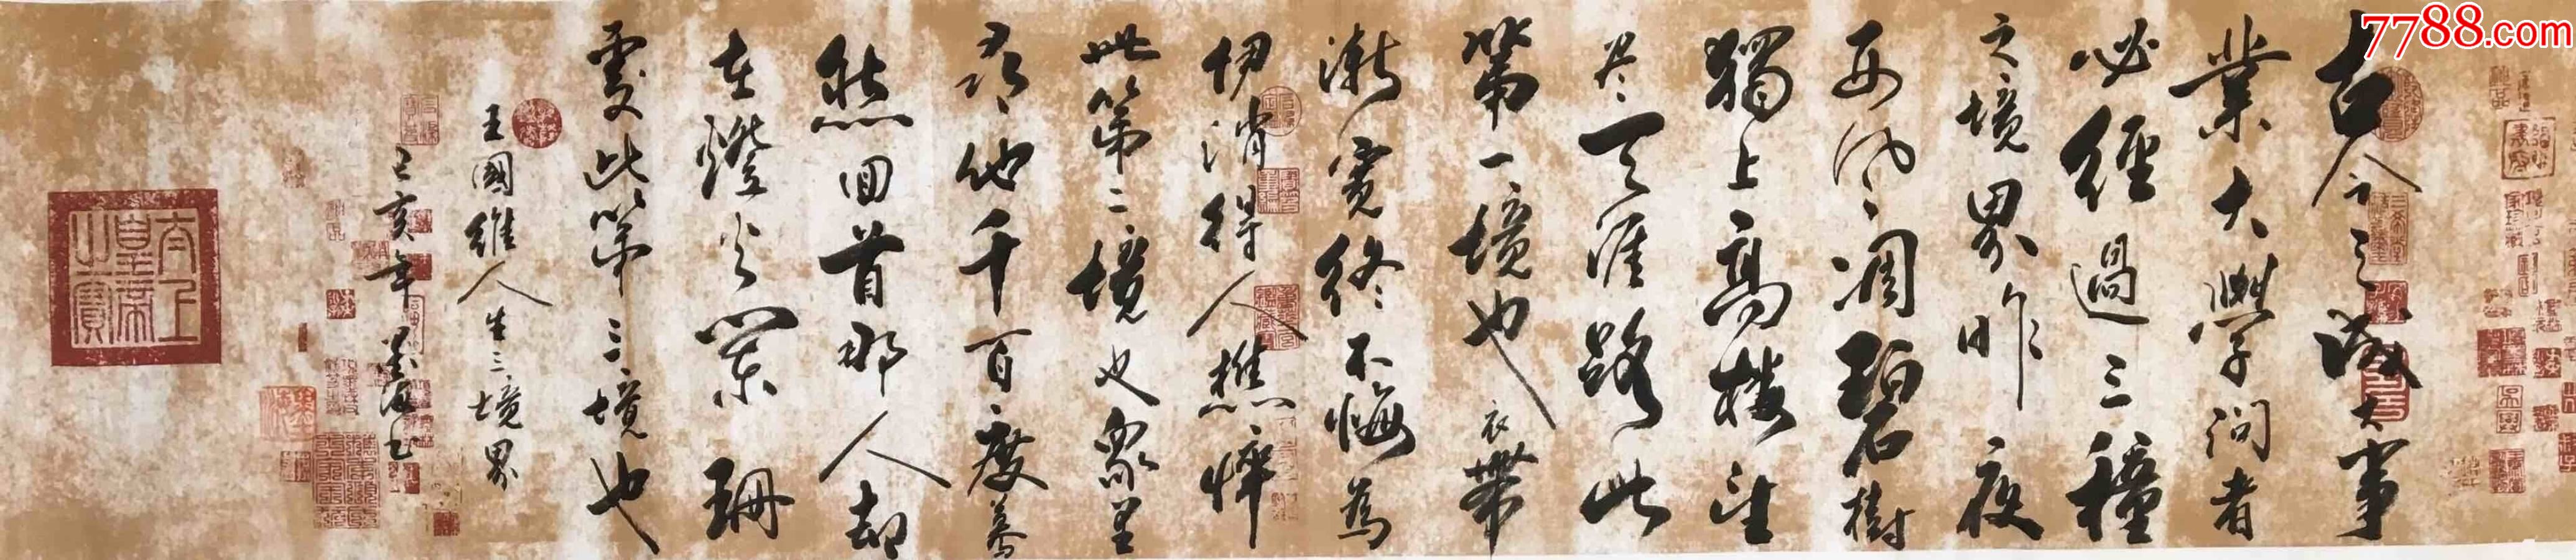 古今之成大事
業大學問者
必經過三種
之境界昨夜
西風凋碧樹
獨上高樓望
尽天涯路此
第一境也衣帶
漸寬終不悔為
伊消得人憔悴
此第二境也眾里
尋他千百度驀
然回首那人却
在燈火闌珊
處此第三境也
王國維人生三境界
己亥年墨海书
太上皇帝之寶
7788.com